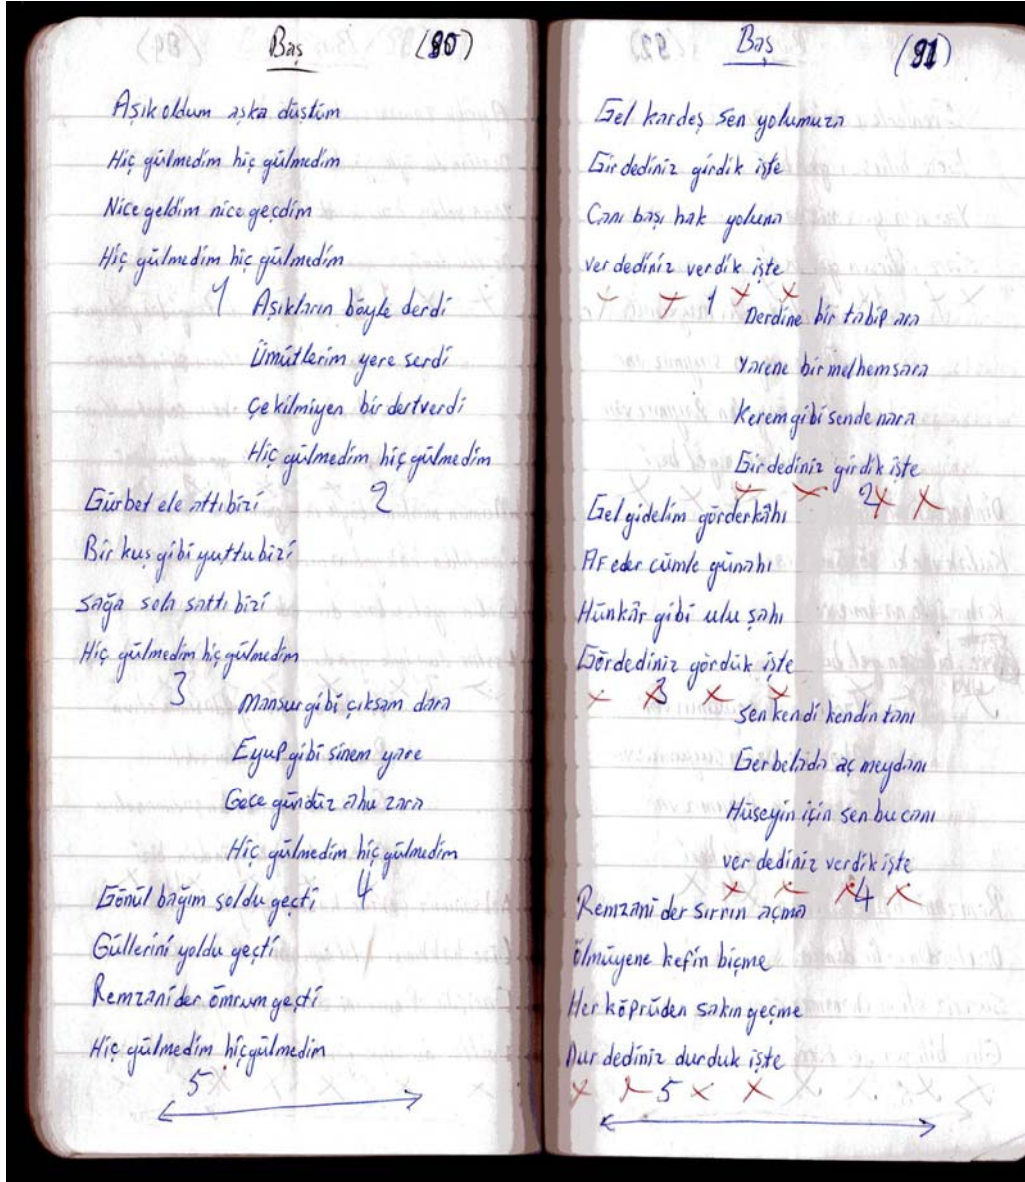 Baş (90)
Aşık oldum aşka düştüm
Hiç gülmedim hiç gülmedim
Nice geldim nice geçdim
Hiç gülmedim hiç gülmedim
1
Aşıkların böyle derdi
Ümütlerim yere serdi
Çekilmiyen bir dert verdi
Hiç gülmedim hiç gülmedim
2
Gürbet ele attı bizi
Bir kuş gibi yuttu bizi
Sağa sola sattı bizi
Hiç gülmedim hiç gülmedim
3
Mansur gibi çıksam dara
Eyup gibi sinem yare
Gece gündüz ahu zara
Hiç gülmedim hiç gülmedim
4
Gönül bağım soldu geçti
Güllerini yoldu geçti
Remzani der ömrum geçti
Hiç gülmedim hiç gülmedim
5
Baş (91)
Gel kardeş sen yolumuza
Gir dediniz girdik işte
Canı başı hak yoluna
ver dediniz verdik işte
1
Derdine bir tabip ara
Yarene bir melhem sara
Kerem gibi sende nara
Gir dediniz girdik işte
2
Gel gidelim görderkâhı
Af eder cümle günahı
Hünkâr gibi ulu şahı
Gör dediniz gördük işte
3
Sen kendi kendin tanı
Gerbelada aç meydanı
Hüseyin için sen bu canı
ver dediniz verdik işte
4
Remzani der sırrın açma
Ölmüyene kefin biçme
Her köprüden sakın geçme
Dur dediniz durduk işte
5